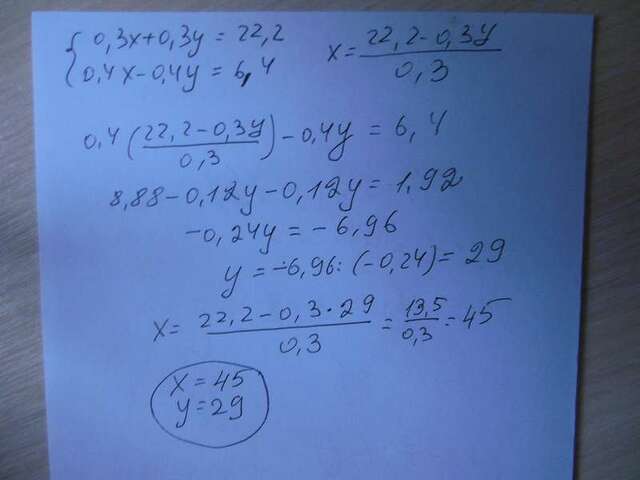 { 0,3x+0,3y = 22,2
0,4x-0,4y = 6,4
x = (22,2-0,3y)/0,3
0,4 ((22,2-0,3y)/0,3) - 0,4y = 6,4
8,88-0,12y-0,12y = 1,92
-0,24y = -6,96
y = -6,96:(-0,24) = 29
x = (22,2-0,3·29)/0,3 = 13,5/0,3 = 45
x = 45
y = 29